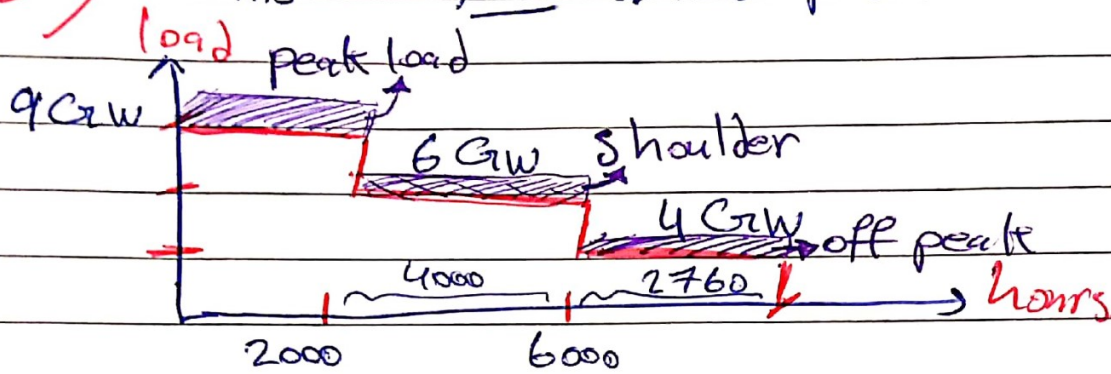 load
peak load
9 GW
6 GW shoulder
4 GW off peak
4000 2760
hours
2000 6000